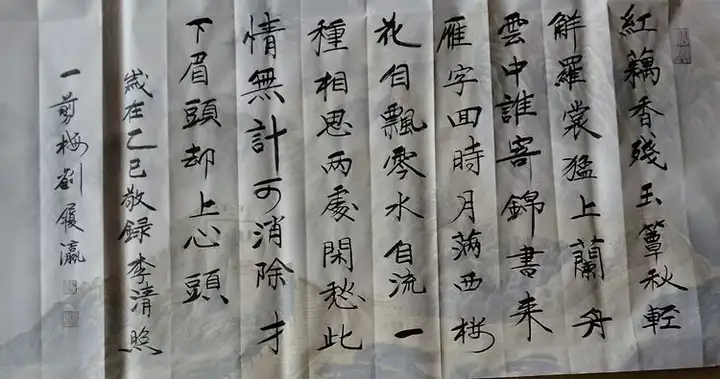 紅藕香殘玉簟秋輕
觧羅裳猛上蘭舟
雲中誰寄錦書来
雁字囬時月满西楼
花自飄零水自流一
種相思两處閑愁此
情無計可消除才
下眉頭却上心頭
歲在乙巳敬録李清照
一剪梅劉履瀛